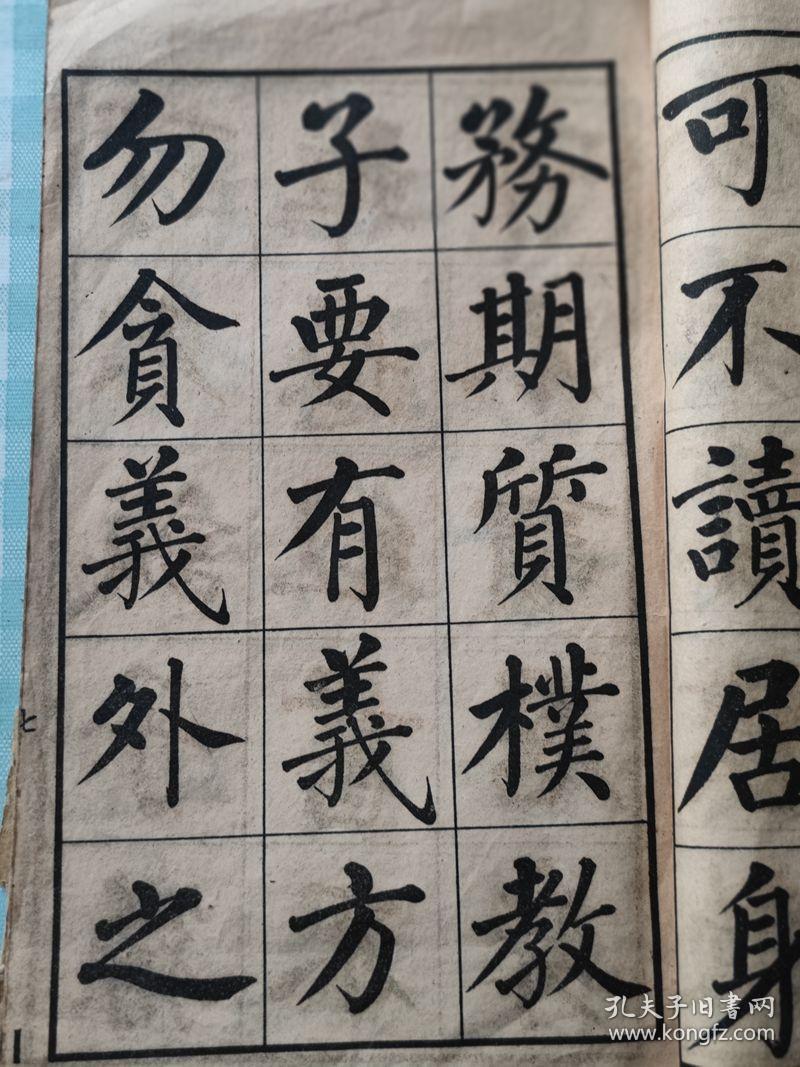 可不讀居身
務期質樸教
子要有義方
勿貪義外之
七
孔夫子旧书网
www.kongfz.com